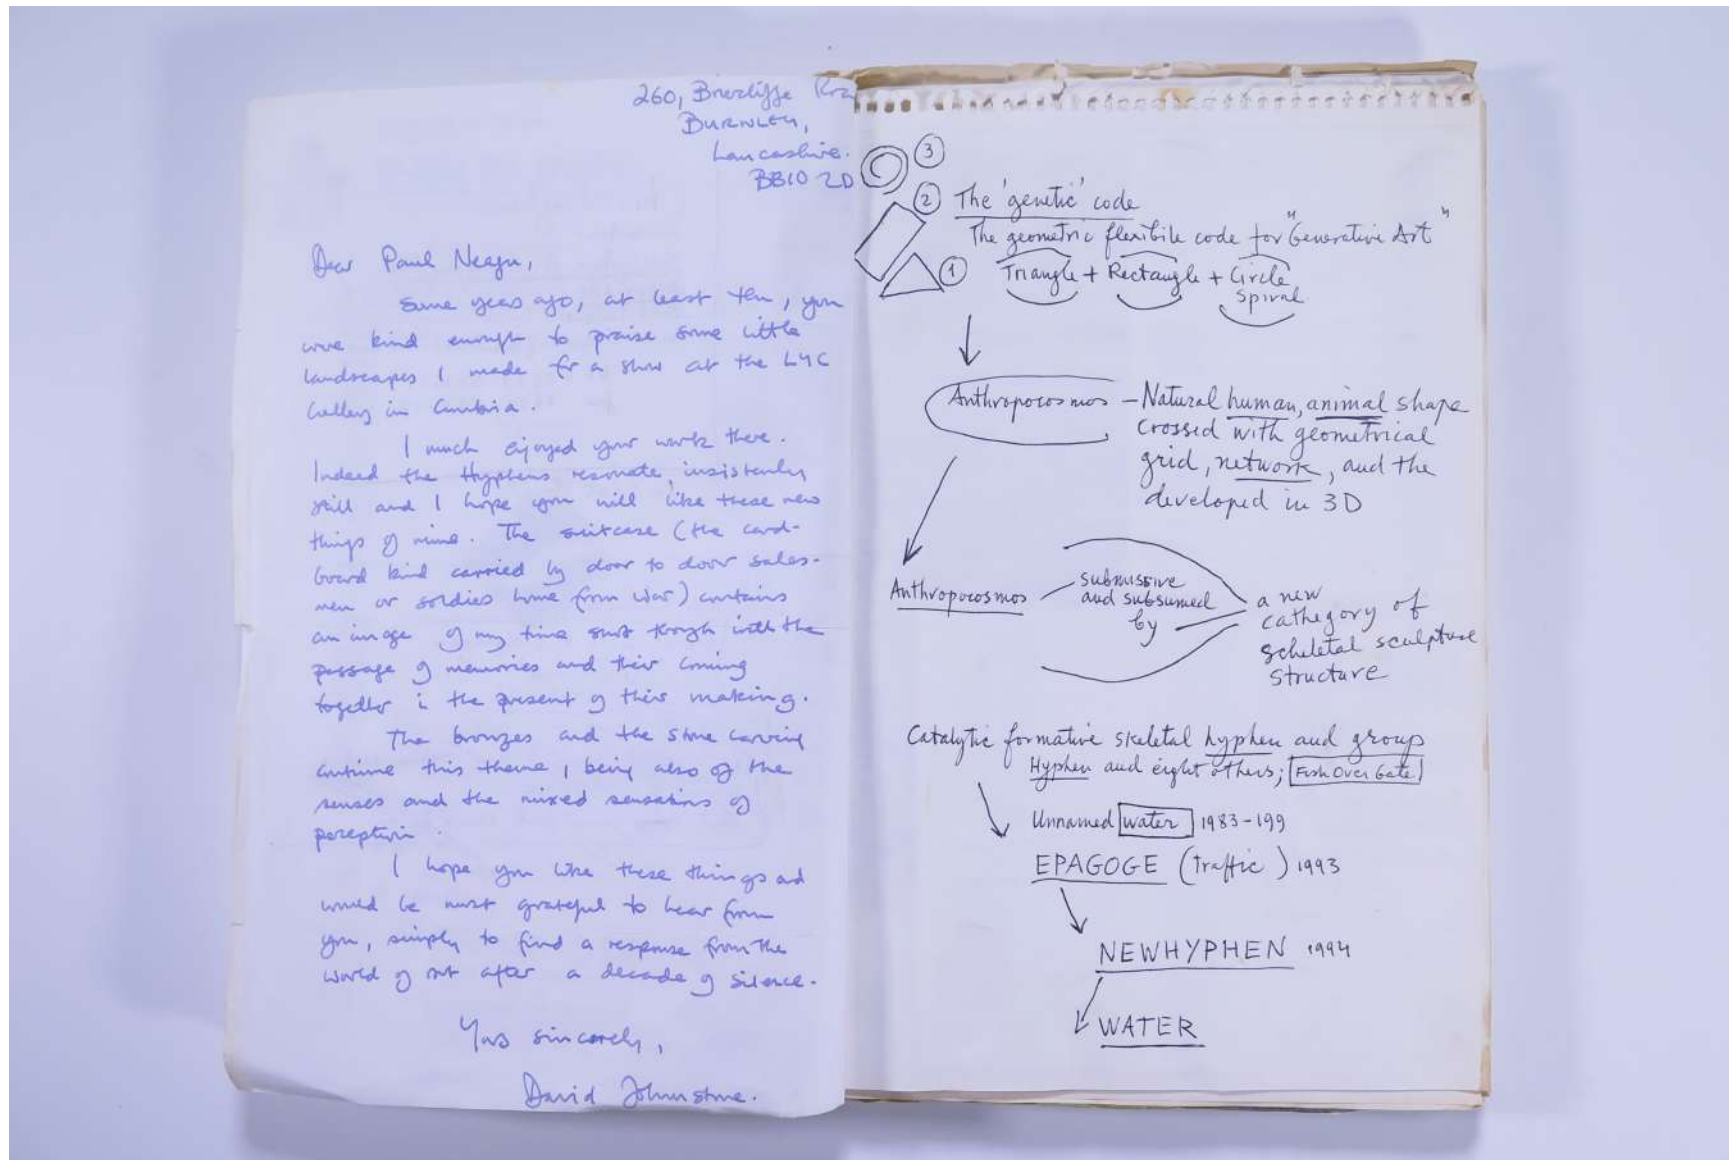 260, Briercliffe Roa
BURNLEY,
Lancashire.
BB10 2D
Dear Paul Neagu,
Some years ago, at least ten, you
were kind enough to praise some little
landscapes I made for a show at the LYC
Gallery in Cumbria.
I much enjoyed your work there.
Indeed the Hyphens resonate, insistently
still and I hope you will like these new
things of mine. The suitcase (the card-
board kind carried by door to door sales-
men or soldies home from war) contains
an image of my time shot through with the
passage of memories and their coming
together in the present of their making.
The bronzes and the stone carving
continue this theme, being also of the
senses and the mixed sensations of
perception.
I hope you like these things and
would be most grateful to hear from
you, simply to find a response from the
world of art after a decade of silence.
Yours sincerely,
David Johnstone.
3
2 The 'genetic' code
The geometric flexibile code for "Generative Art"
1 Triangle + Rectangle + Circle
spiral
Anthropocosmos – Natural human, animal shape
crossed with geometrical
grid, network, and the
developed in 3D
Anthropocosmos
submissive
and subsumed
by
a new
cathegory of
scheletal sculpture
structure
Catalytic formative skeletal hyphen and group
Hyphen and eight others; Fish Over Gate
Unnamed water 1983-199
EPAGOGE (traffic) 1993
NEWHYPHEN 1994
WATER